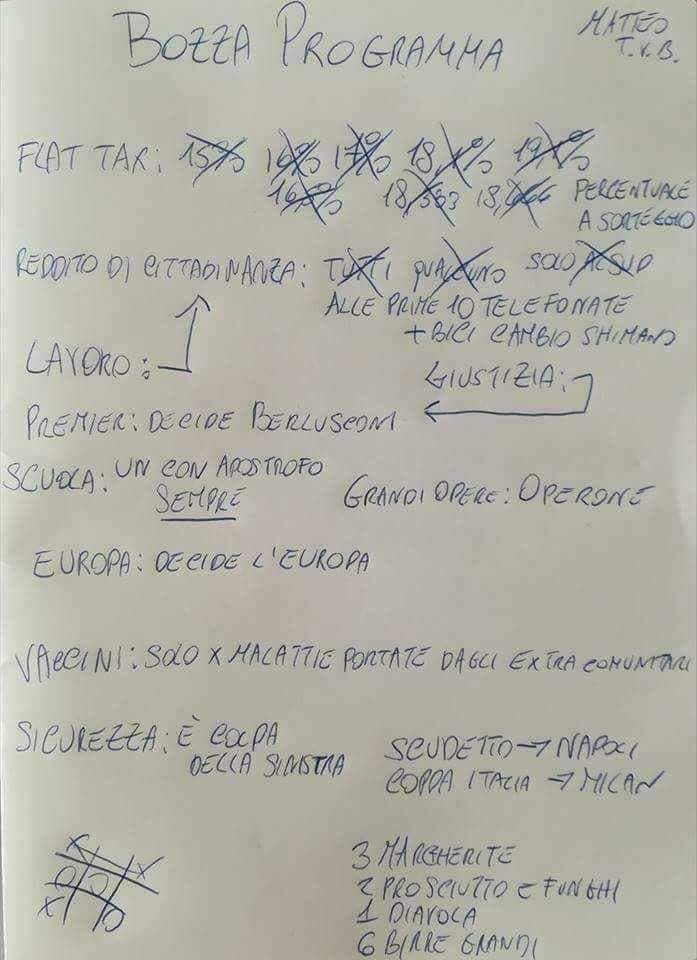 BOZZA PROGRAMMA
MATTEO
T.V.B.
FLAT TAX: 15% 16% 17% 18,1% 19,1%
18,333 18,666 PERCENTUALE
A SORTEGGIO
REDDITO DI CITTADINANZA: TUTTI QUALCUNO SOLO AL SUD
ALLE PRIME 10 TELEFONATE
+ BICI CAMBIO SHIMANO
LAVORO:
GIUSTIZIA:
PREMIER: DECIDE BERLUSCONI
SCUOLA: UN CON APOSTROFO
SEMPRE
GRANDI OPERE: OPERONE
EUROPA: DECIDE L'EUROPA
VACCINI: SOLO X MALATTIE PORTATE DAGLI EXTRA COMUNITARI
SICUREZZA: È COLPA
DELLA SINISTRA
SCUDETTO → NAPOLI
COPPA ITALIA → MILAN
3 MARGHERITE
2 PROSCIUTTO E FUNGHI
1 DIAVOLA
6 BIRRE GRANDI